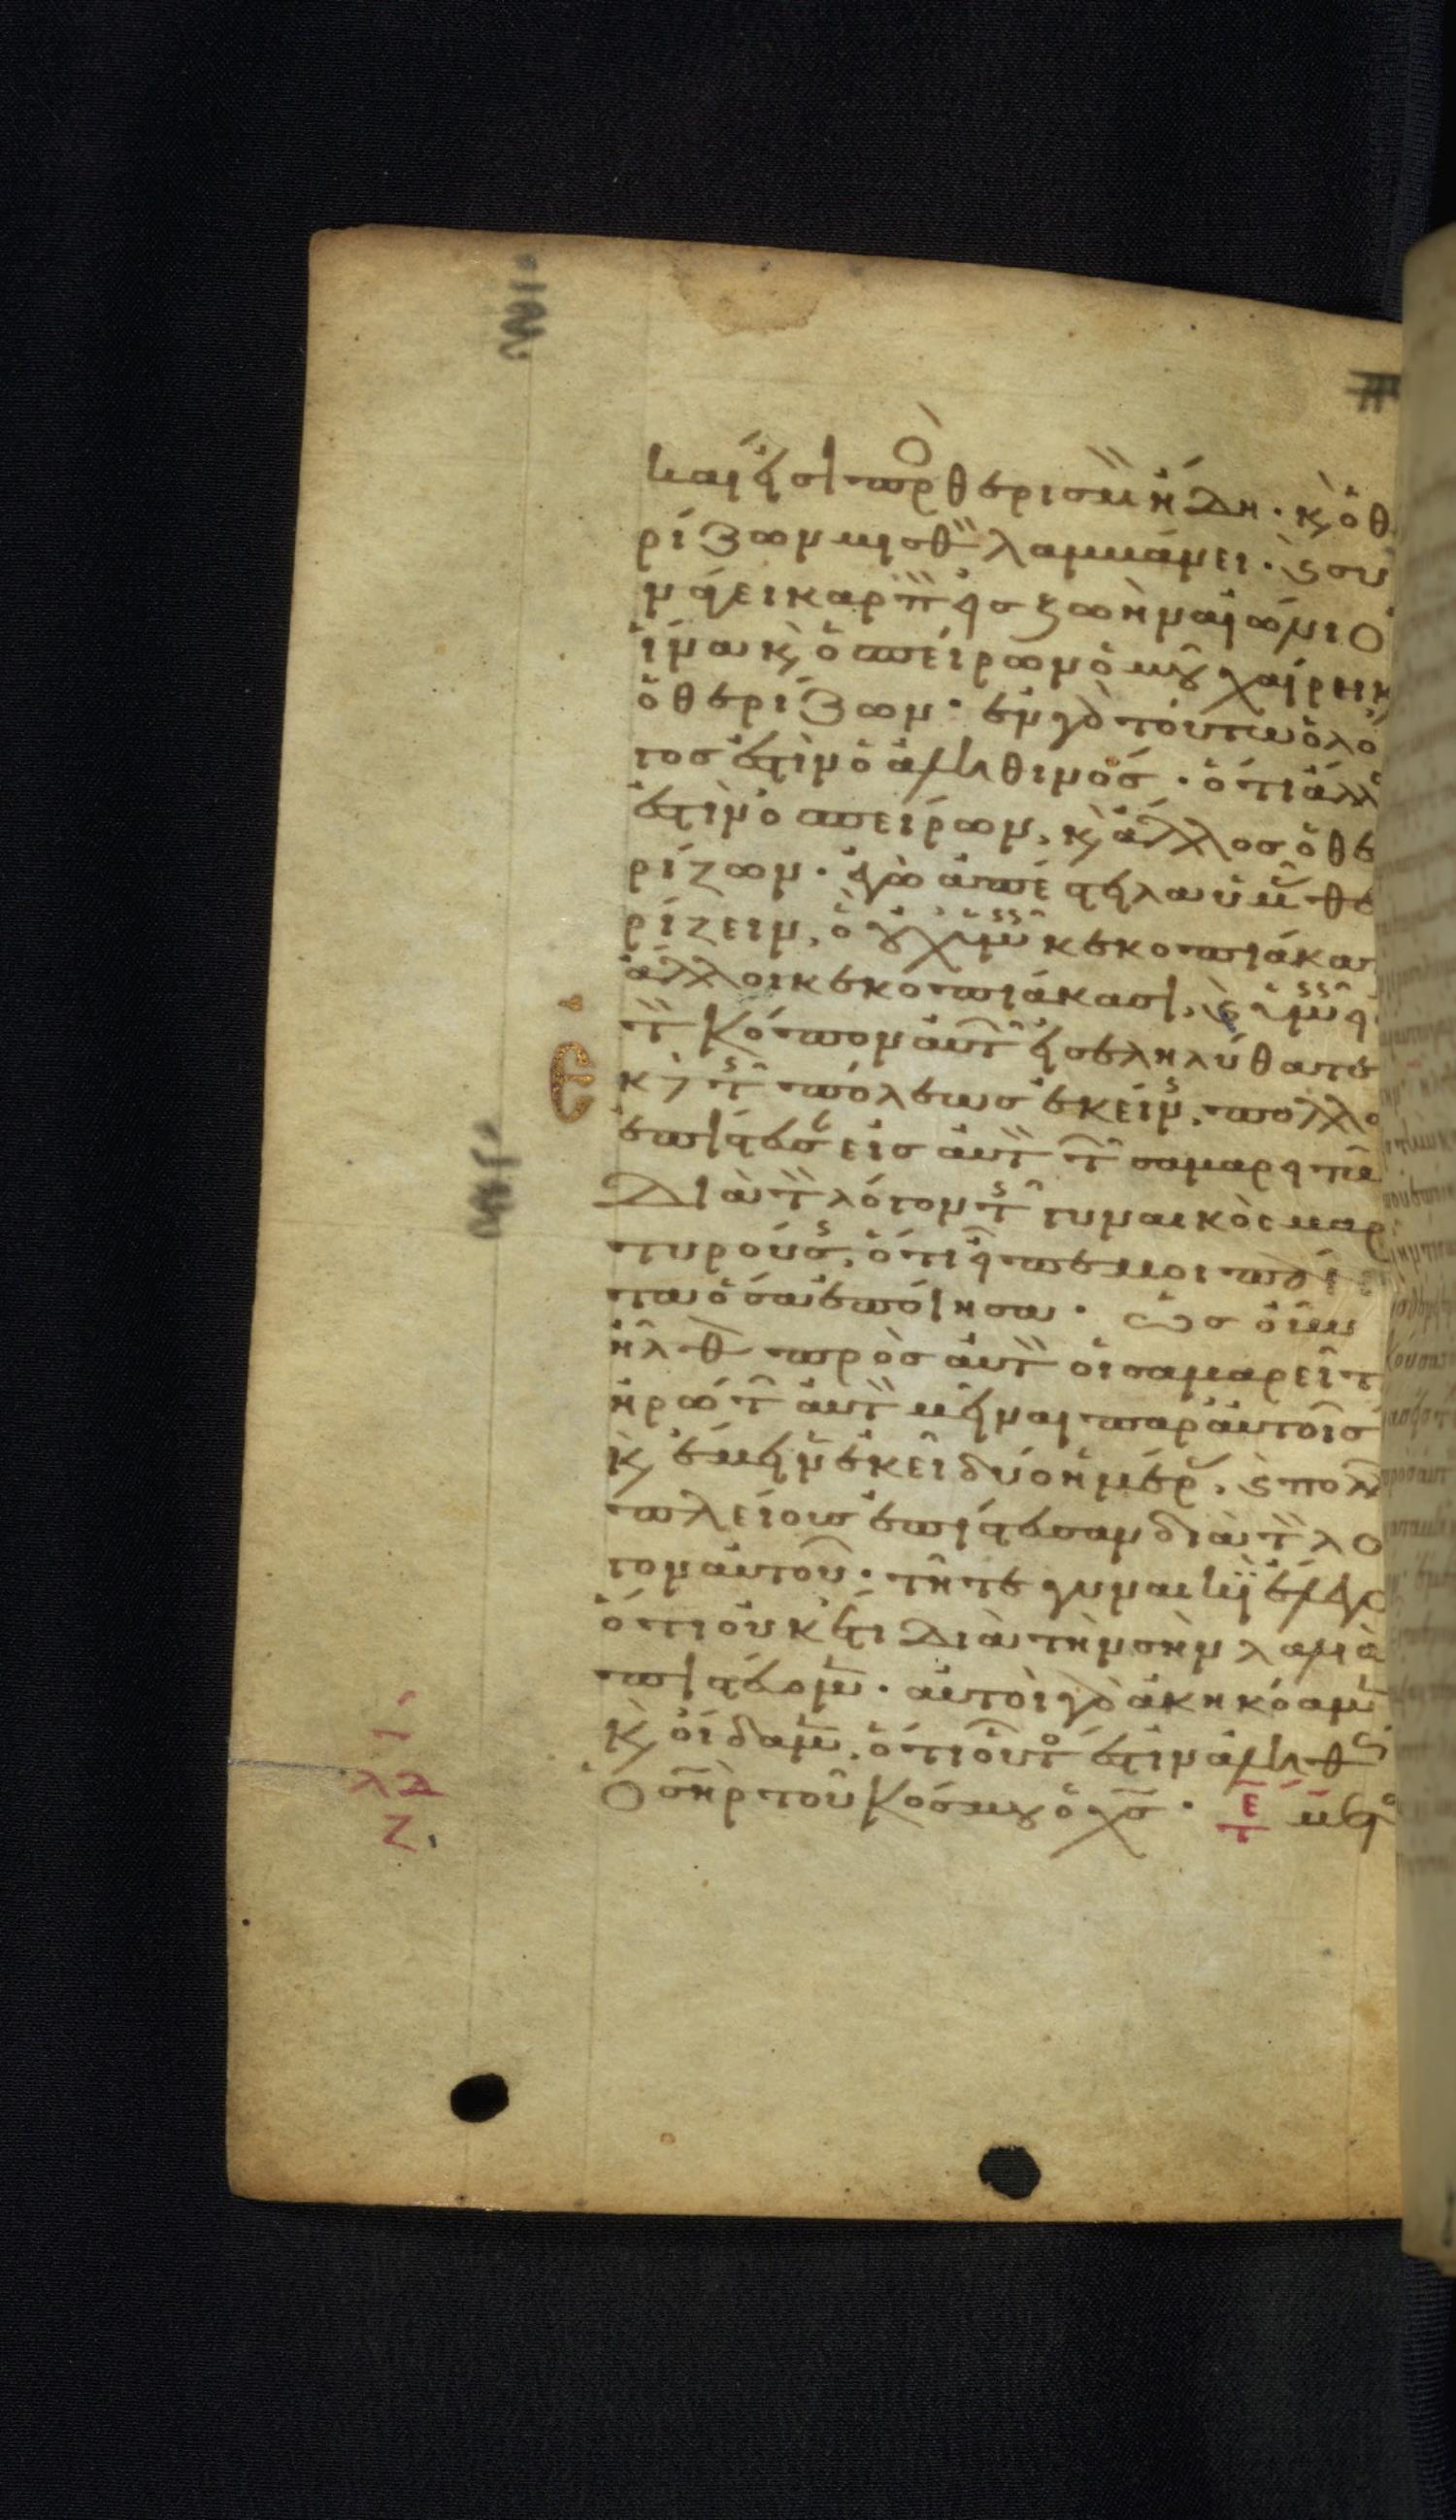 καί εἰσι πρ̀ θερισμ ἤδη. κ̀ ὁ θ
ρίζων μισθ λαμβάνει. κ̀ συ
νάγει καρπ εἰσ ζωὴν αἰώνιο
ἵνα κ̀ ὁ σπείρων ὁμοῦ χαίρει κ
ὁ θερίζων. ἐν γὰρ τούτω ὁ λό
γοσ ἐστὶν ὁ ἀληθινόσ. ὅτι ἄλλ
ἐστὶν ὁ σπείρων, κ̀ ἄλλοσ ὁ θε
ρίζων. ἐγὼ ἀπέστειλα ὑμ θε
ρίζειν, ὃ οὐχ ὑμ κεκοπιάκα
ἄλλοι κεκοπιάκασι, κ̀ ὑμ
τ κόπον αὐτ εἰσεληλύθατε
Ε κ δ τ πόλεωσ ἐκείν, πολλο
ἐπίστευσ εἰσ αὐτ τ σαμαρειτ
Διὰ τ λόγον τ γυναικὸς μαρ
τυρούσ, ὅτι εἶπε μοι πά
τα ὅσα ἐποίησα. ὡσ οὖν
ἦλθ πρὸσ αὐτ οἱ σαμαρεῖτ
ἠρώτ αὐτ μεῖναι παρ αὐτοῖσ
κ̀ ἔμεινεν ἐκεῖ δύο ἡμέρ, κ̀ πολλ
πλείουσ ἐπίστευσαν διὰ τ λό
γον αὐτοῦ. τῆ τε γυναικὶ ἔλεγο
ὅτι οὐκέτι Διὰ τὴν σὴν λαλιὰ
πιστεύομ. αὐτοὶ γὰρ ἀκηκόαμ
κ̀ οἴδαμ, ὅτι οὗτ ἐστὶν ἀληθ
Ὁ σηρ τοῦ κόσμου ὁ χσ.
λδ
ζ.